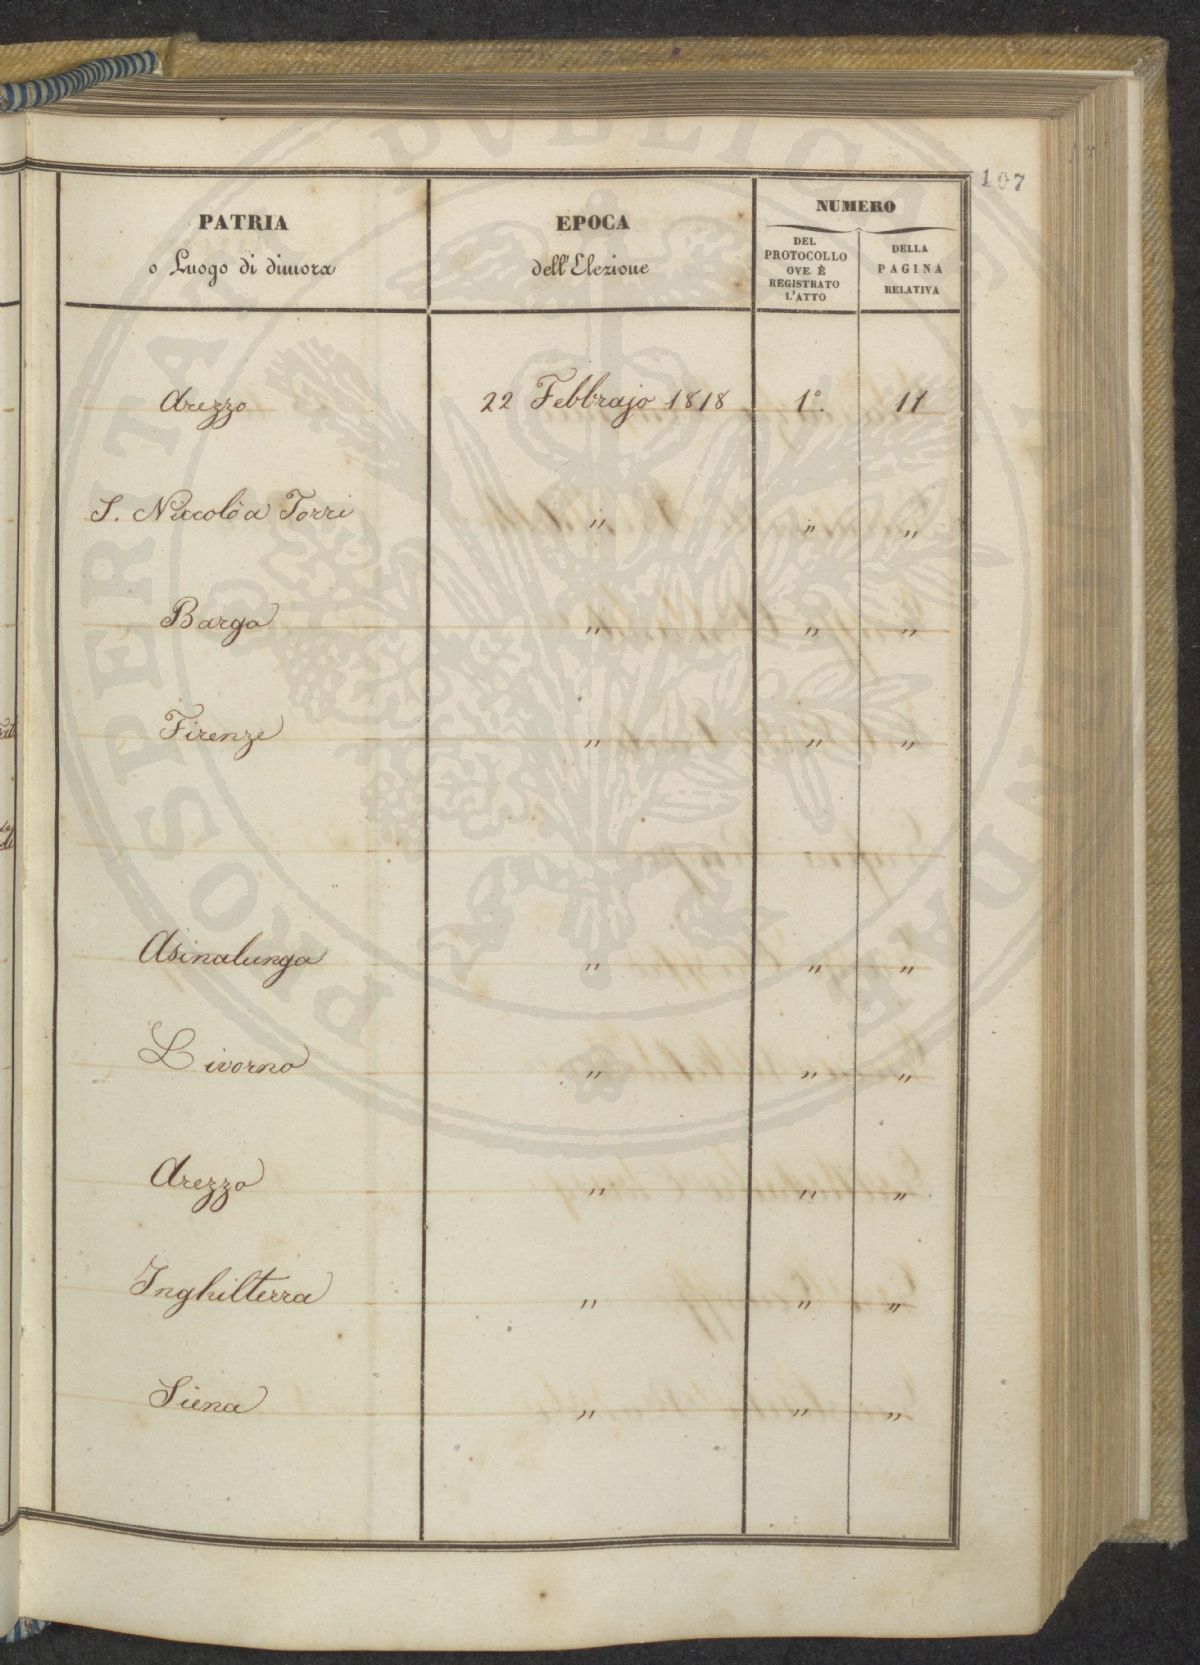 107
PATRIA
o Luogo di dimora
EPOCA
dell'Elezione
NUMERO
DEL
PROTOCOLLO
OVE È
REGISTRATO
L'ATTO
DELLA
PAGINA
RELATIVA
Arezzo 22 Febbrajo 1818 1°. 11
S. Niccolò a Torri " " "
Barga " " "
Firenze " " "
Asinalunga " " "
Livorno " " "
Arezzo " " "
Inghilterra " " "
Siena " " "
PROSPERITATI PVBLICAE